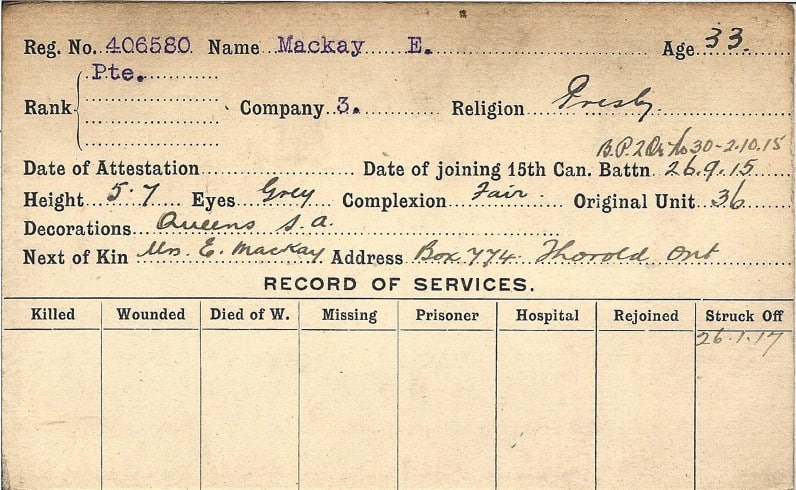 Reg. No. 406580 Name Mackay E. Age 33.
Pte.
Rank Company 3. Religion Presby.
B.P.2 Or. No 30-2.10.15
Date of Attestation Date of joining 15th Can. Battn. 26.9.15
Height 5.7 Eyes Grey Complexion Fair. Original Unit 36
Decorations Queens S.A.
Next of Kin Mrs. E. Mackay Address Box 774. Thorold Ont
RECORD OF SERVICES.
Killed Wounded Died of W. Missing Prisoner Hospital Rejoined Struck Off
26.1.17